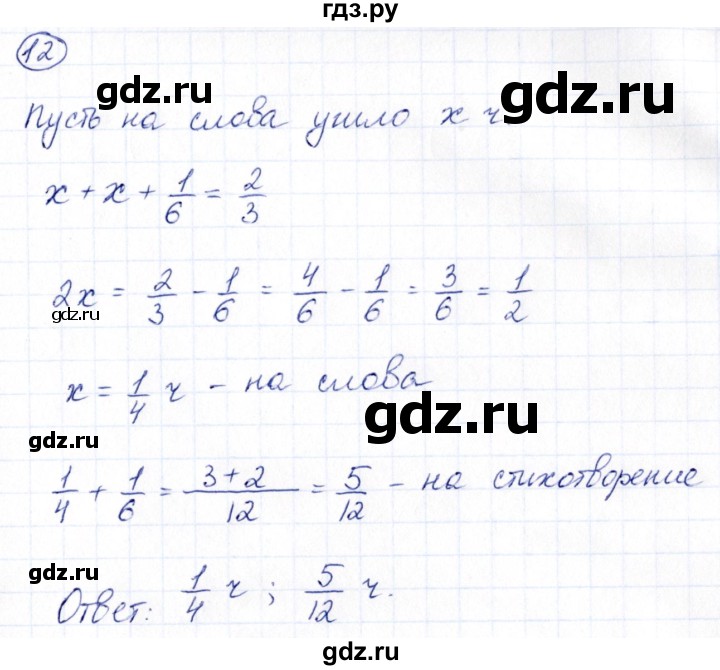 гдз.ру
12
gdz.ru
gdz.ru
Пусть на слова ушло x ч
x + x + 1/6 = 2/3
2x = 2/3 - 1/6 = 4/6 - 1/6 = 3/6 = 1/2
gdz.ru
x = 1/4 ч - на слова
gdz.ru
gdz.ru
1/4 + 1/6 = (3+2)/12 = 5/12 - на стихотворение
gdz.ru
Ответ: 1/4 ч ; 5/12 ч.
gdz.ru